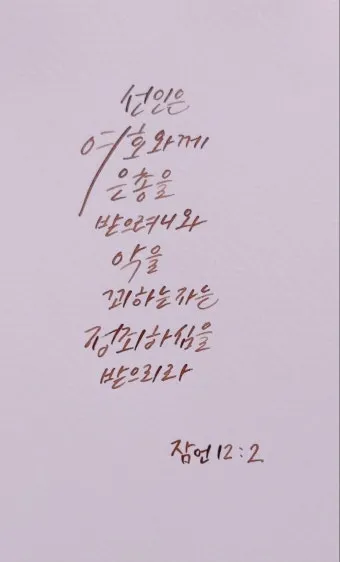 선인은
여호와께
은총을
받으려니와
악을
꾀하는자는
정죄하심을
받으리라
잠언 12:2